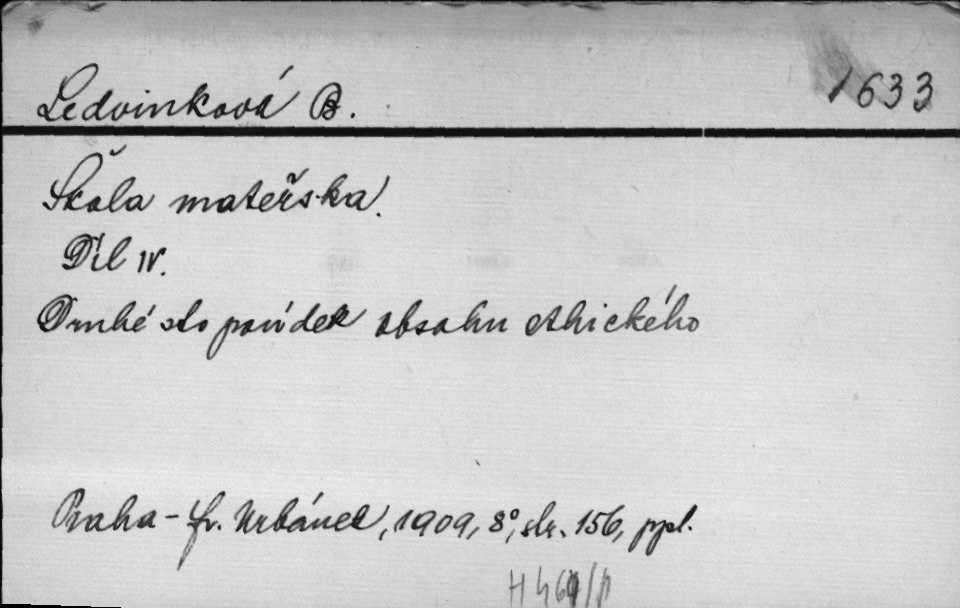 Ledvinková B. 1633
Škola mateřská.
Díl IV.
Druhé sto povídek obsahu ethického
Praha - Fr. Urbánek, 1909, 8°, str. 156, ppl.